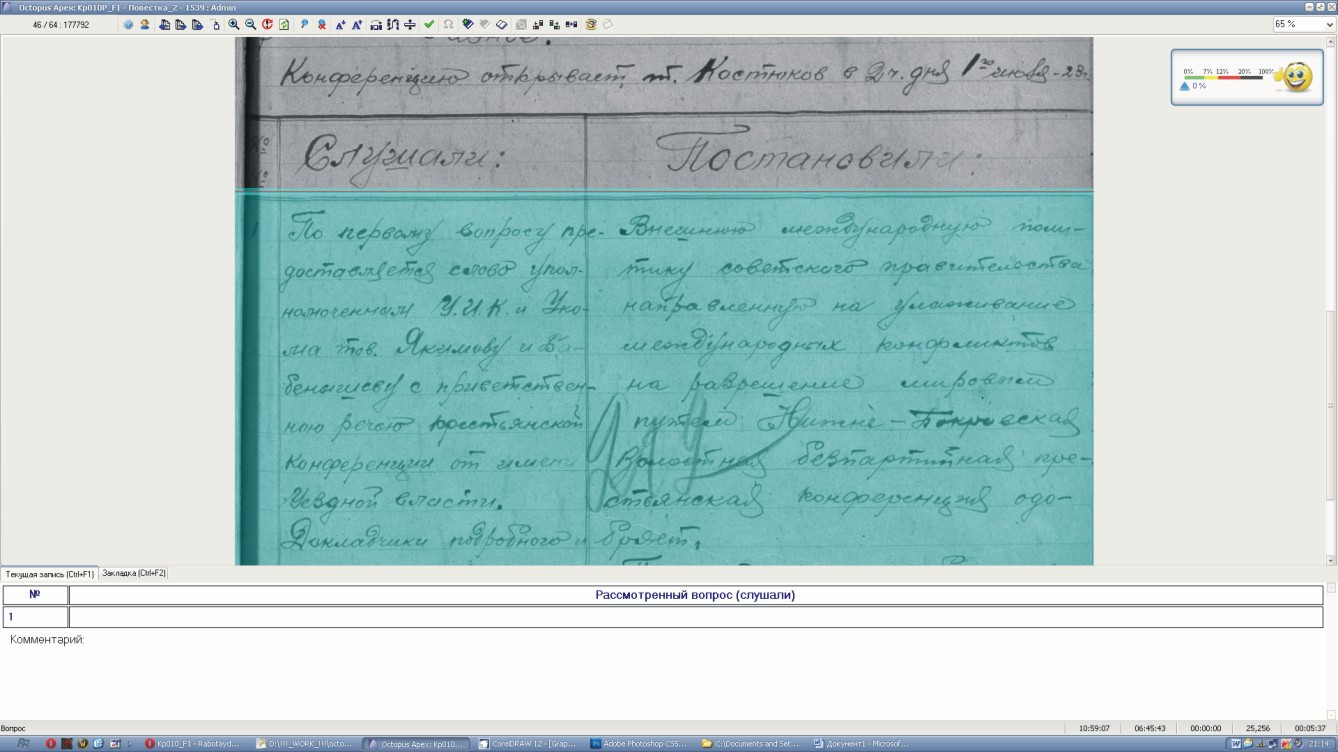 Octopus Apex: Kp010P_F1 - Повестка_2 - 1539 : Admin
46 / 64 : 177792
65 %
0% 7% 12% 20% 100%
0 %
Конференцию открывает т. Костюков в 2 ч. дня 1го июля-23г.
Слушали:
Постановили:
По первому вопросу пре-
доставляется слово упол-
номоченным У.И.К. и Уко-
ма тов. Якимову и Ба-
бенышеву с приветствен-
ною речью крестьянской
конференции от имени
Уездной власти.
Докладчики подробного и
Внешнюю международную поли-
тику советского правительства
направленную на улаживание
международных конфликтов
на разрешение мировым
путем Нижне-Покровская
Волостная безпартийная кре-
стьянская конференция одо-
бряет.
Текущая запись (Ctrl+F1)
Закладка (Ctrl+F2)
№
Рассмотренный вопрос (слушали)
1
Комментарий:
Вопрос
10:59:07
06:45:43
00:00:00
25,256
00:05:37
Kp010_F1 - Rabotayd...
D:\!!!_WORK_!!!\octo...
Octopus Apex: Kp010...
CorelDRAW 12 - [Grap...
Adobe Photoshop CS5...
C:\Documents and Set...
Документ1 - Microsof...
21:14